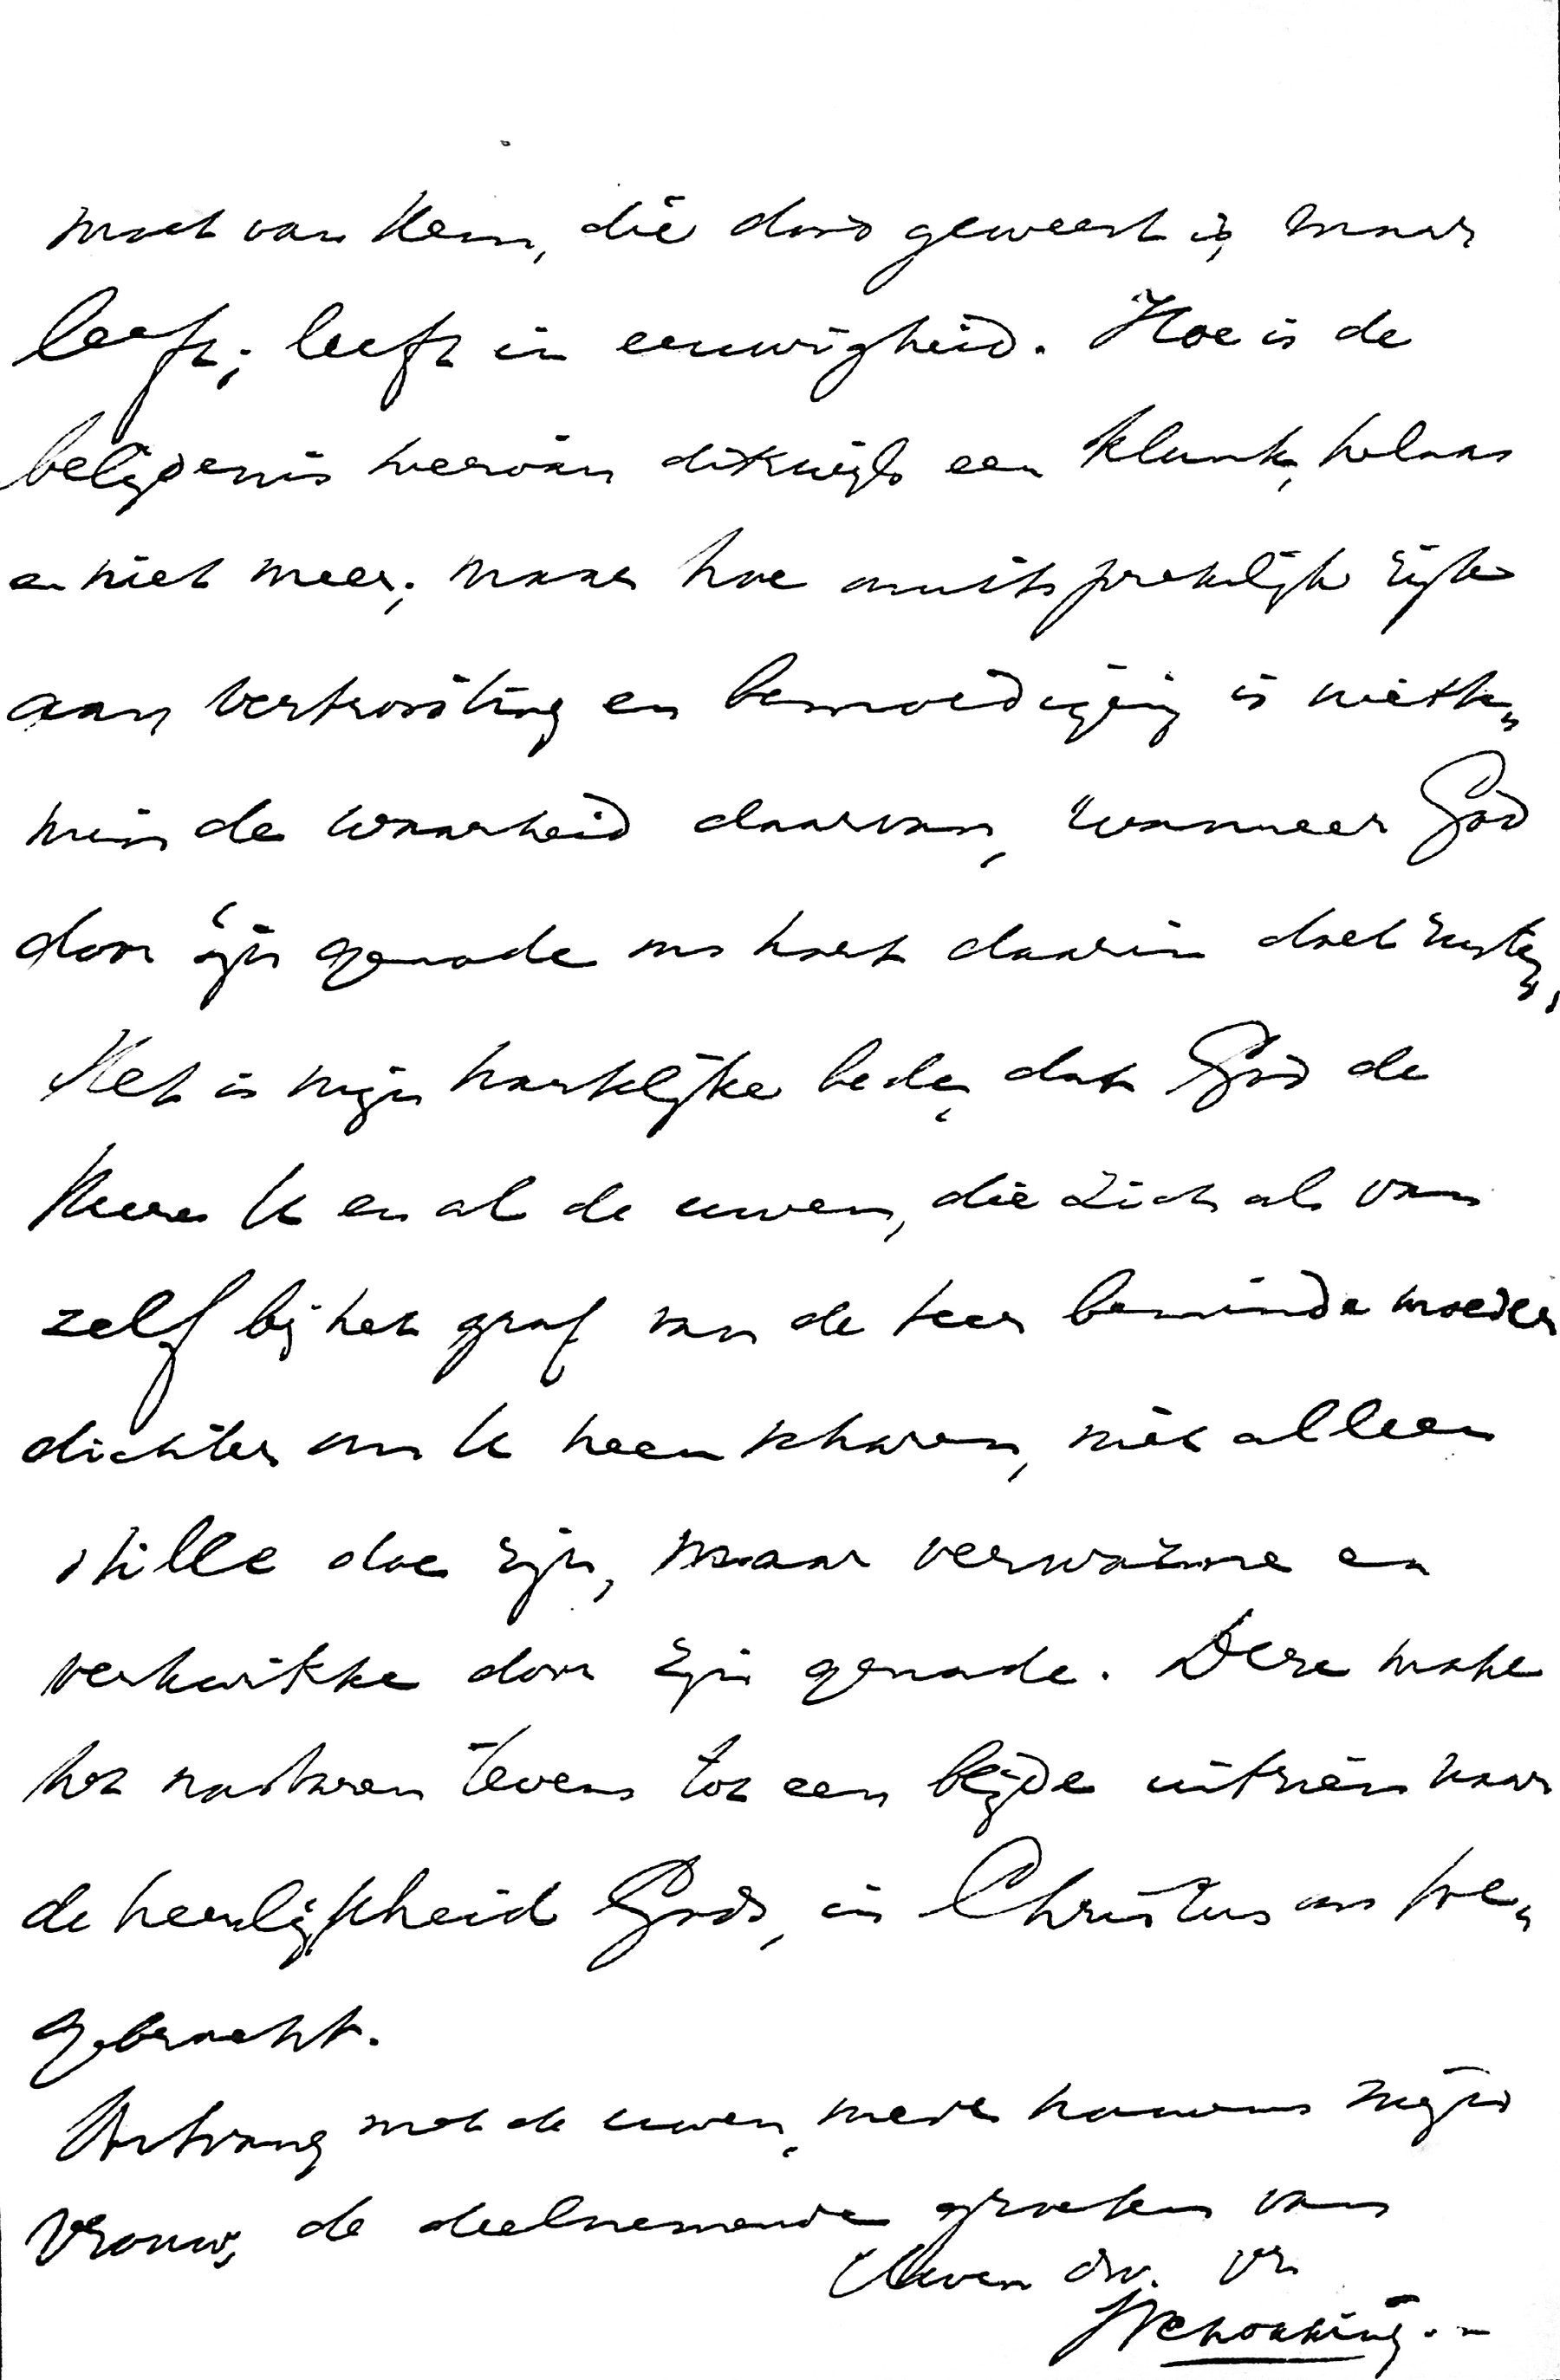 moet van Hem, die dood geweest is, maar
leeft; leeft in eeuwigheid. Hoe is de
belijdenis hiervan dikwijls een klank, helaas
en niet meer; maar hoe onuitsprekelijk rijk
aan vertroosting en bemoediging is niette„
min de waarheid daarvan, wanneer God
door zijn genade ons hart daarin doet rusten,
Het is mijn hartelijke bede, dat God de
Heere U en al de uwen, die zich als van
zelf bij het graf van de teer beminde moeder
dichter om U heen scharen, niet alleen
stille doe zijn, maar verwarme en
verkwikke door zijn genade. Deze make
het nastaren tevens tot een blijde uitzien naar
de heerlijkheid Gods, in Christus ons toe„
gebracht.
Ontvang met de uwen, mede namens mijn
vrouw, de deelnemende groeten van
Uwen dw. vr.
Schokking.